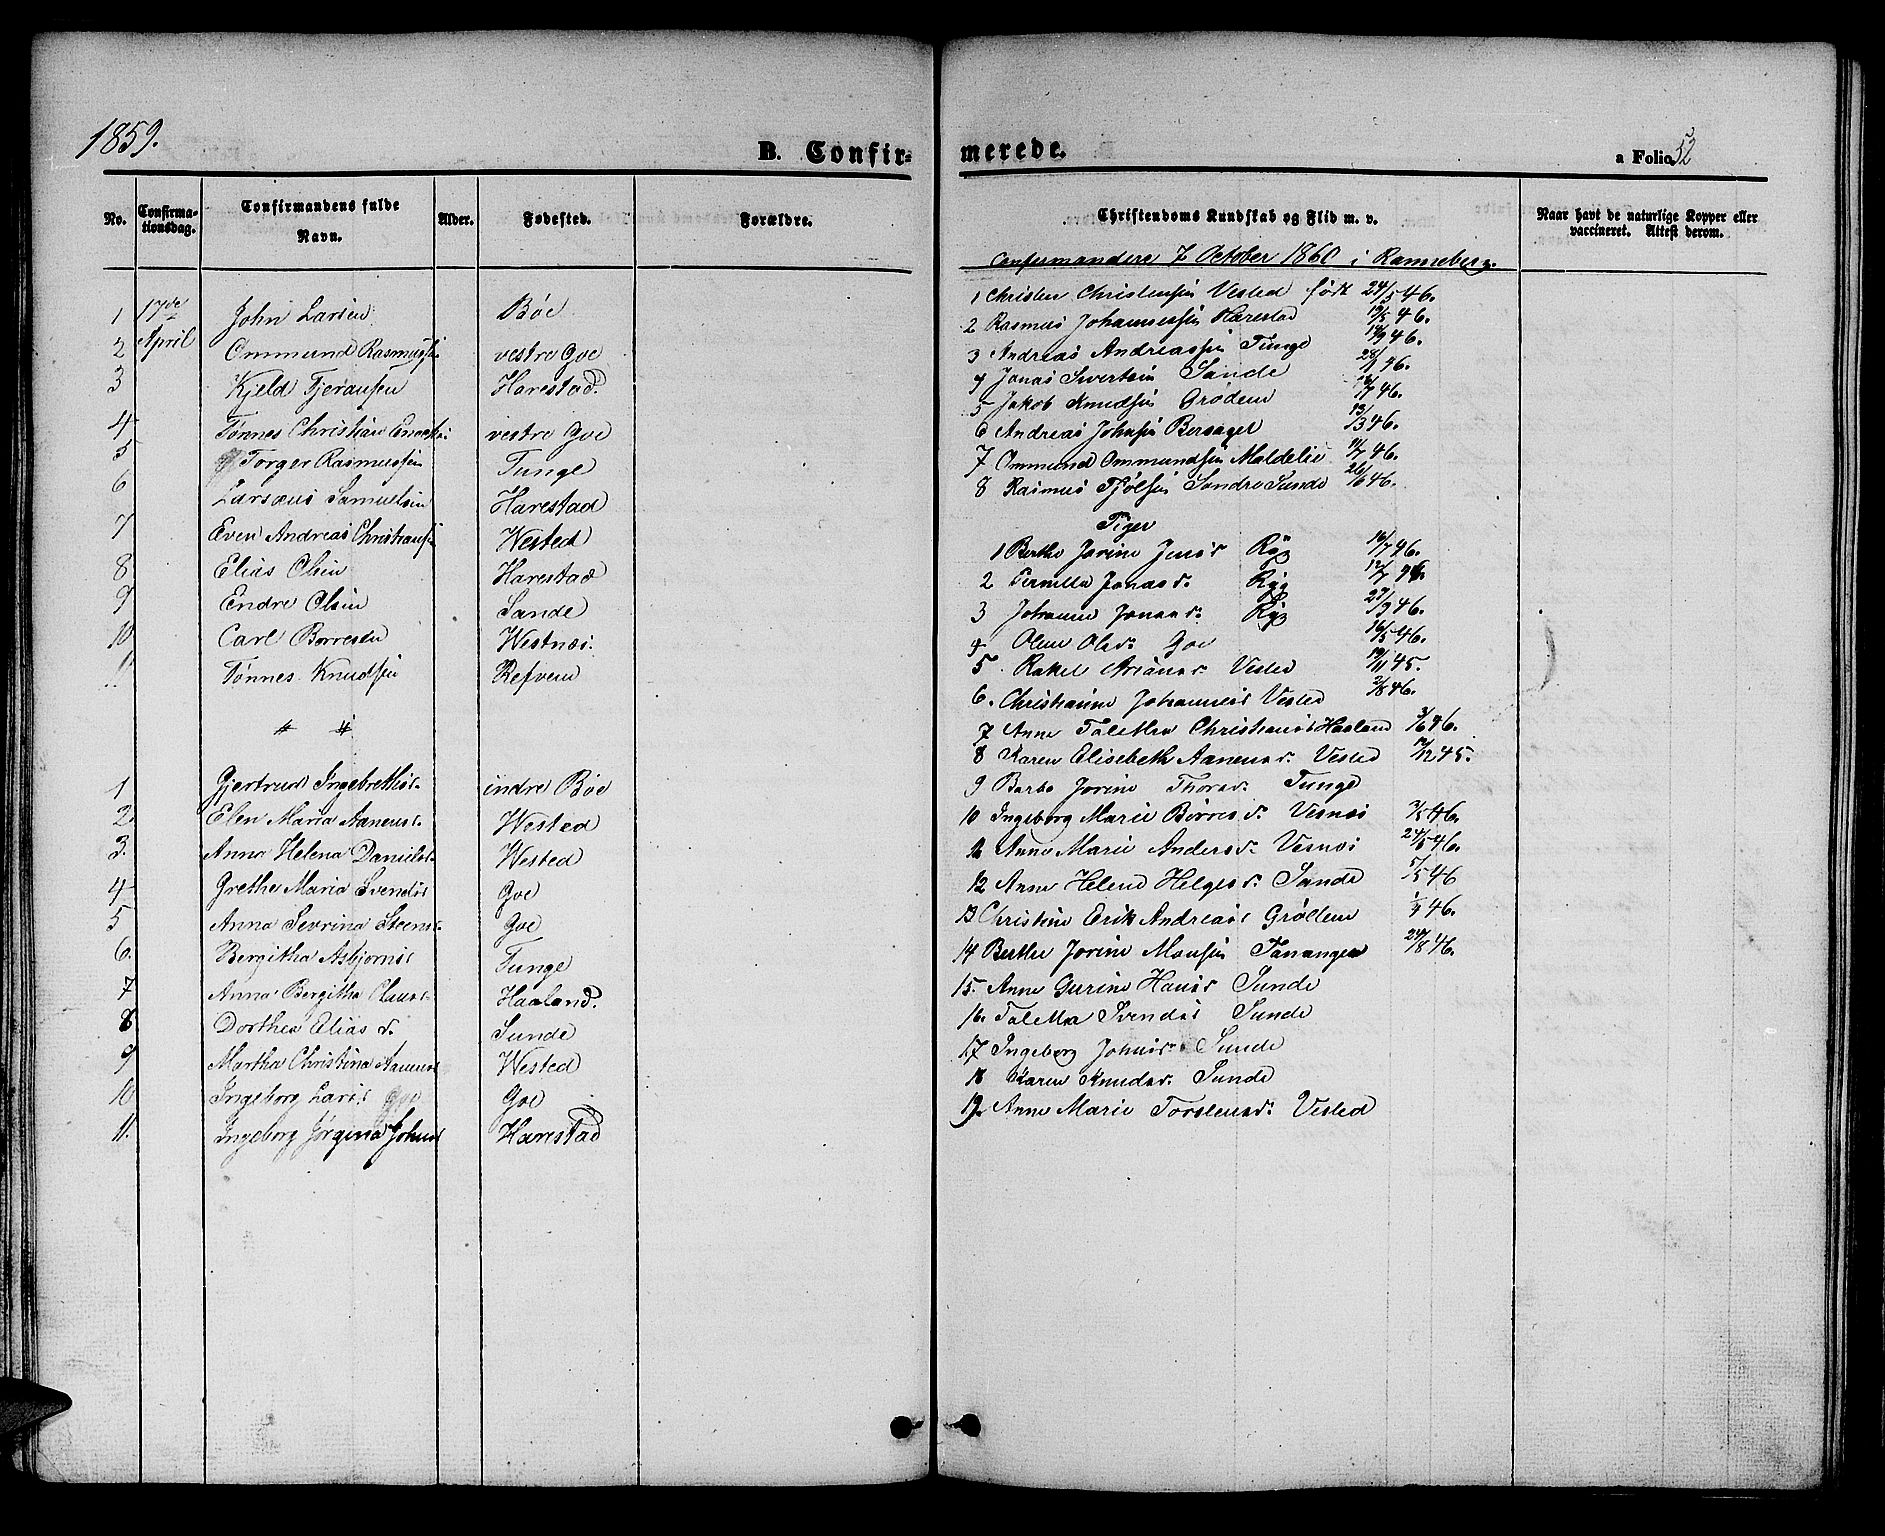 1859.
B. Confir-
No.
Confirma-
tionsdag.
Confirmandens fulde
Navn.
Alder.
Fødested.
Forældre.
1 17de April John Larsen Bøe
2 Ommund Rasmussen vestre Goe
3 Kjeld Tjeransen Harestad.
4 Tønnes Christian vestre Goe
5 Torger Rasmussen Tunge
6 Larsæus Samuelsen Harestad
7 Even Andreas Christiansen Wested
8 Elias Olsen Harestad
9 Endre Olsen Sande
10 Carl Børresen Westnæs.
11 Tønnes Knudsen Refvem
1 Gjertrud Ingebrethsd. indre Bøe
2. Elen Maria Aanensd. Wested
3. Anna Helena Danielsd. Wested
4 Grethe Maria Svendsd. Goe
5 Anna Sevrina Steensd. Goe
6. Bergitha Asbjørnsd. Tunge
7 Anna Bergitha Clausd. Haaland.
8 Dorthea Eliasd. Sunde
9 Martha Christina Aanensd. Wested
10 Ingeborg Larsd. Goe Goe
11. Ingeborg Jørgina Johnsd. Harestad
merede.
a Folio 52
Christendoms Kundskab og Flid m. v.
Naar havt de naturlige Kopper eller
vaccineret. Attest derom.
Confermandere 7 October 1860 i Ranneberg.
1 Christen Christensen Vested født 24/5 46.
2 Rasmus Johannessen Harestad 19/5 46.
3 Andreas Andreassen Tunge 14/9 46.
4 Jonas Sivertsen Sande 28/ 46.
5 Jakob Knudsen Grødem 46.
6 Andreas Johnsen Bersagel 13/3 46.
7 Ommund Ommundsen Maldelie 11/7 46.
8 Rasmus Tjølsen Søndre Sunde 26/6 46.
Piger
1 Berthe Jorine Jensd. Ryg 16/7 46.
2 Pernille Jonasd. Ryg 12/7 46.
3 Johanne Jonasd. Ryg 27/9 46.
4 Olene Olsd. Goe 16/5 46.
5 Rakel Arianesd. Vested 19/11 45.
6. Christianne Johannesd. Vested 2/8 46.
7 Anne Talethea Christiansd. Haaland 3/6 46.
8 Karen Elisebeth Aanensd. Vested 17/12 45.
9 Barbo Jorine Thorsd. Tunge
10 Ingeborg Marie Børresd. Vesnæs 3/8 46.
11 Anne Marie Andersd. Vesnæs 24/5 46.
12 Anne Helene Helgesd. Sande 5/5 46
13 Christine Erik Andreasd. Grødem 1/9 46.
14 Berthe Jorine Monsen Tananger 24/8 46.
15. Anne Gurine Hansd. Sunde
16. Talethea Svendsd. Sunde
17 Ingeborg Johnsd. Sunde
18 Karen Knudsd. Sunde
19. Anne Marie Torstensd. Vested